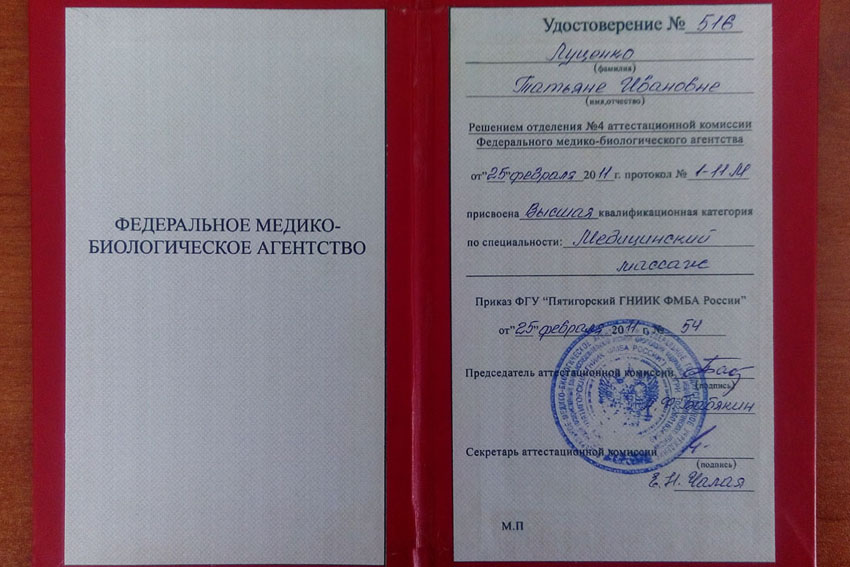 ФЕДЕРАЛЬНОЕ МЕДИКО-
БИОЛОГИЧЕСКОЕ АГЕНТСТВО
Удостоверение № 516
Луценко
(фамилия)
Татьяне Ивановне
(имя,отчество)
Решением отделения №4 аттестационной комиссии
Федерального медико-биологического агентства
от"25"февраля 2011 г. протокол № 1-11М
присвоена Высшая квалификационная категория
по специальности: Медицинский
массаж
Приказ ФГУ "Пятигорский ГНИИК ФМБА России"
от"25"февраля 2011 г. № 54
Председатель аттестационной комиссии
(подпись)
Бабякин
Секретарь аттестационной комиссии
(подпись)
Е.Н. Чалая
М.П